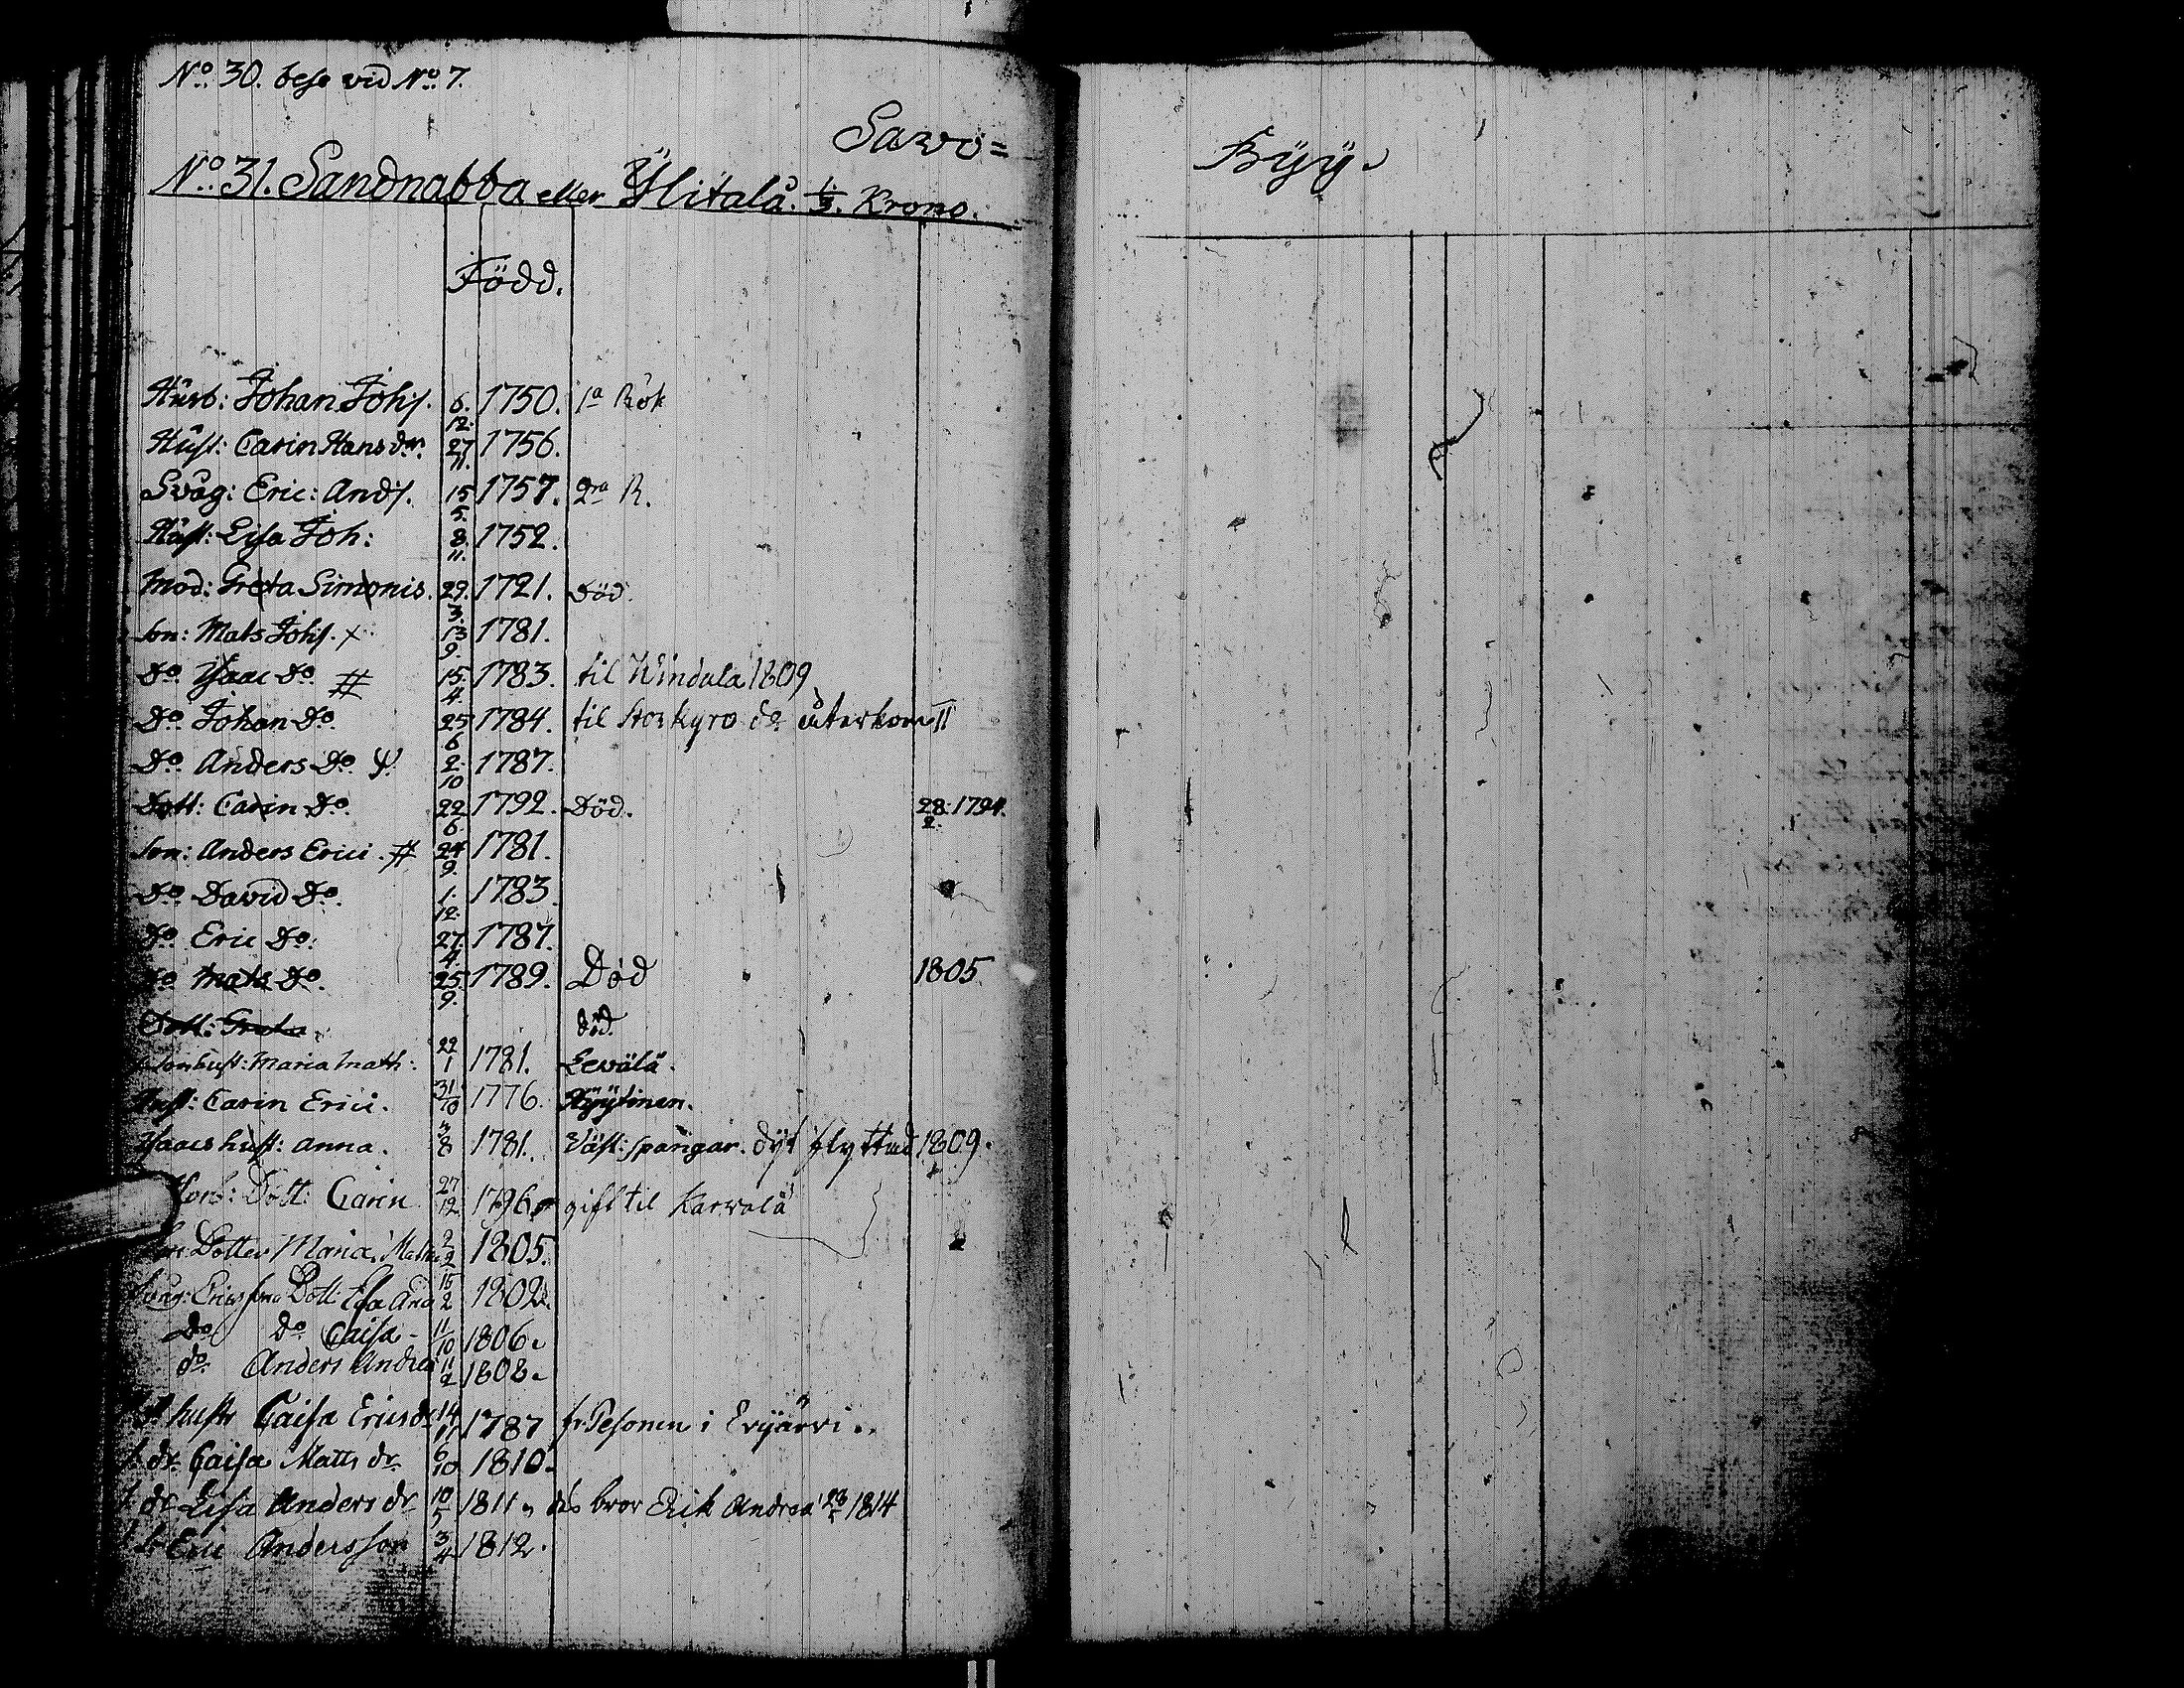 No. 30. bese vid No. 7.
Sawo=
No. 31. Sandnabba eller Ylitalå. 1/3. Krono.
Byÿ.
Född.
Husb: Johan Johs. 6. 12. 1750. 1a Rök
Hust: Carin Hansdr. 27 11. 1756.
Svåg: Eric: Ands. 15 5. 1757. 2ra R.
Hust: Lisa Joh: 8. 11. 1752.
Mod: Greta Simonis. 29. 3. 1721. Död.
Son: Mats Johs. x 13 9. 1781.
Do. Isaac Do. # 15. 4. 1783. til Windala 1809
Do. Johan Do. 25 6 1784. til Storkyro do återkom
Do. Anders Do. 2. 10 1787.
Dott: Carin Do. 22 6. 1792. Död. 28. 2. 1794.
Son: Anders Erici. # 24 9. 1781.
Do. David Do. 1. 12. 1783.
Do. Eric Do. 27. 4. 1787.
Do Mats Do. 25. 9. 1789. Död 1805
Dott: Greta död.
Sonhust: Maria Math: 22 1 1781. Lewälä.
Hust: Carin Erici. 31 10 1776. Kÿÿtinen.
Isaacs hust: Anna. 3 8 1781. Väst: spangar. dÿt flyttad 1809.
Dott: Carin 27 12 1796 gift til Karwala
Dotter Maria 2 2 1805.
Svåg: Erics Dott: Lisa 15 2 1802.
Do Do Caisa - 11 10 1806.
do Anders Andrea 11 2 1808.
hustr Caisa Ericsdr 14 11 1787 fr. Pesonen i Evijärvi..
dr. Caisa Matts dr 6 10 1810.
dr Lisa Anders dr 10 5 1811. des bror Erik Andrea 1814
Eric Andersson 3 4 1812.